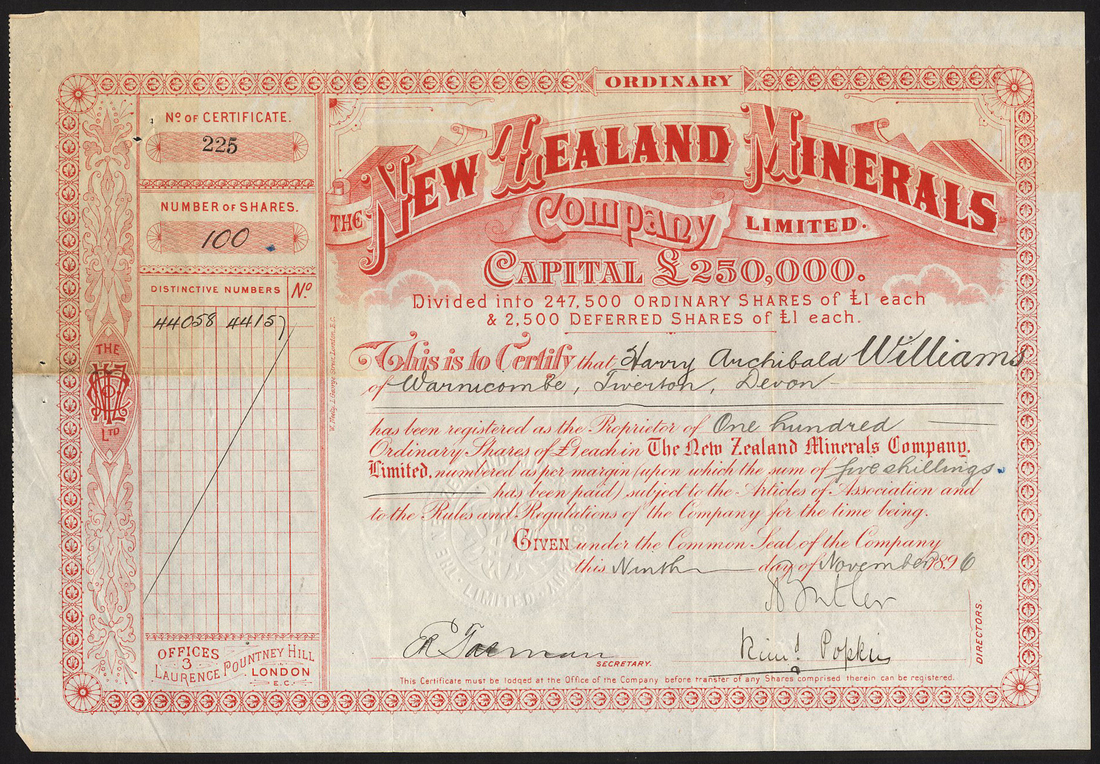 ORDINARY
No. OF CERTIFICATE.
225
NUMBER OF SHARES.
100
DISTINCTIVE NUMBERS No
44058 44157
THE
LTD
OFFICES
3
LAURENCE POUNTNEY HILL
LONDON
E.C.
THE NEW ZEALAND MINERALS
COMPANY LIMITED.
CAPITAL £250,000.
Divided into 247,500 ORDINARY SHARES of £1 each
& 2,500 DEFERRED SHARES of £1 each.
This is to Certify that Harry Archibald Williams
of Warnicombe, Tiverton, Devon
has been registered as the Proprietor of One hundred
Ordinary Shares of £1 each in The New Zealand Minerals Company,
Limited, numbered as per margin (upon which the sum of five shillings
has been paid) subject to the Articles of Association and
to the Rules and Regulations of the Company for the time being.
GIVEN under the Common Seal of the Company
this Ninth day of November 1896
DIRECTORS.
SECRETARY.
This Certificate must be lodged at the Office of the Company before transfer of any Shares comprised therein can be registered.